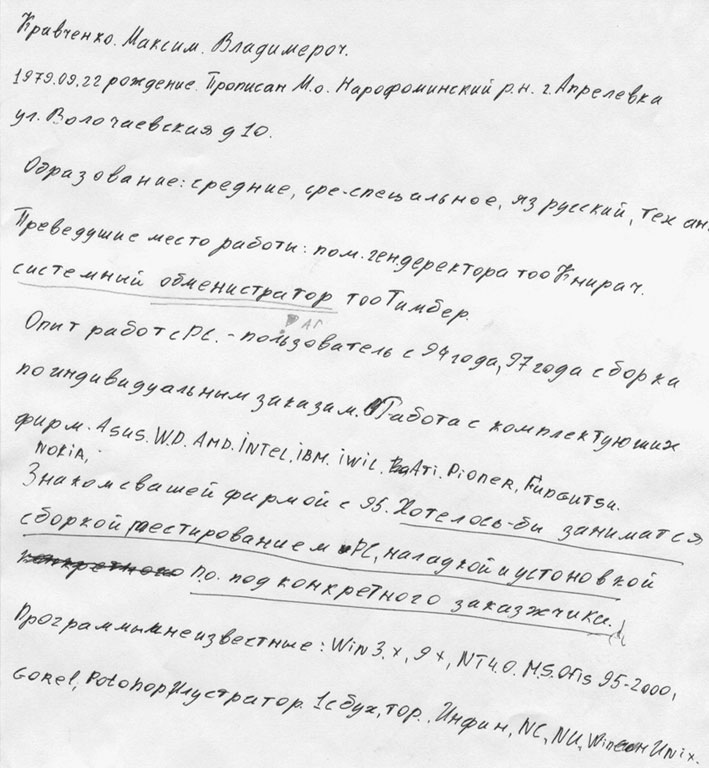 Кравченко. Максим. Владимероч.
1979.09.22 рождение. Прописан М.о. Нарофоминский р.н. г. Апрелевка
ул. Волочаевская д 10.
Образование: средние, сре-специальное, яз русский, тех ан.
Преведушие место работы: пом. ген.деректора тоо Книрач.
системний обменистратор тоо Тимбер.
Опит работ с PC. - пользователь с 94 года, 97 года сборка
по индивидуальным заказам. Работа с комплектующих
фирм. Asus. WD. AMD. iNTEL. iBM. iWiL. ATi. Pioner. Fungutsu.
NOKiA,
Знаком с вашей фирмой с 95. Хотелось-би заниматся
сборкой тестированием PC, наладкой и устоновкой
по. под конкретного заказжчика.
Программы мне известные: Win 3.x, 9x, NT4.0. M.S.Ofis 95-2000,
Gorel, Potohop Илустратор. 1с бух, тор. Инфин, NC, NU, Win Unix.